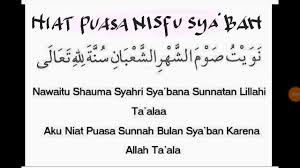 NIAT PUASA NISFU SYA'BAN
نَوَيْتُ صَوْمَ الشَّهْرِ الشَّعْبَانِ سُنَّةً لِلّٰهِ تَعَالَى
Nawaitu Shauma Syahri Sya'bana Sunnatan Lillahi
Ta'alaa
Aku Niat Puasa Sunnah Bulan Sya'ban Karena
Allah Ta'ala